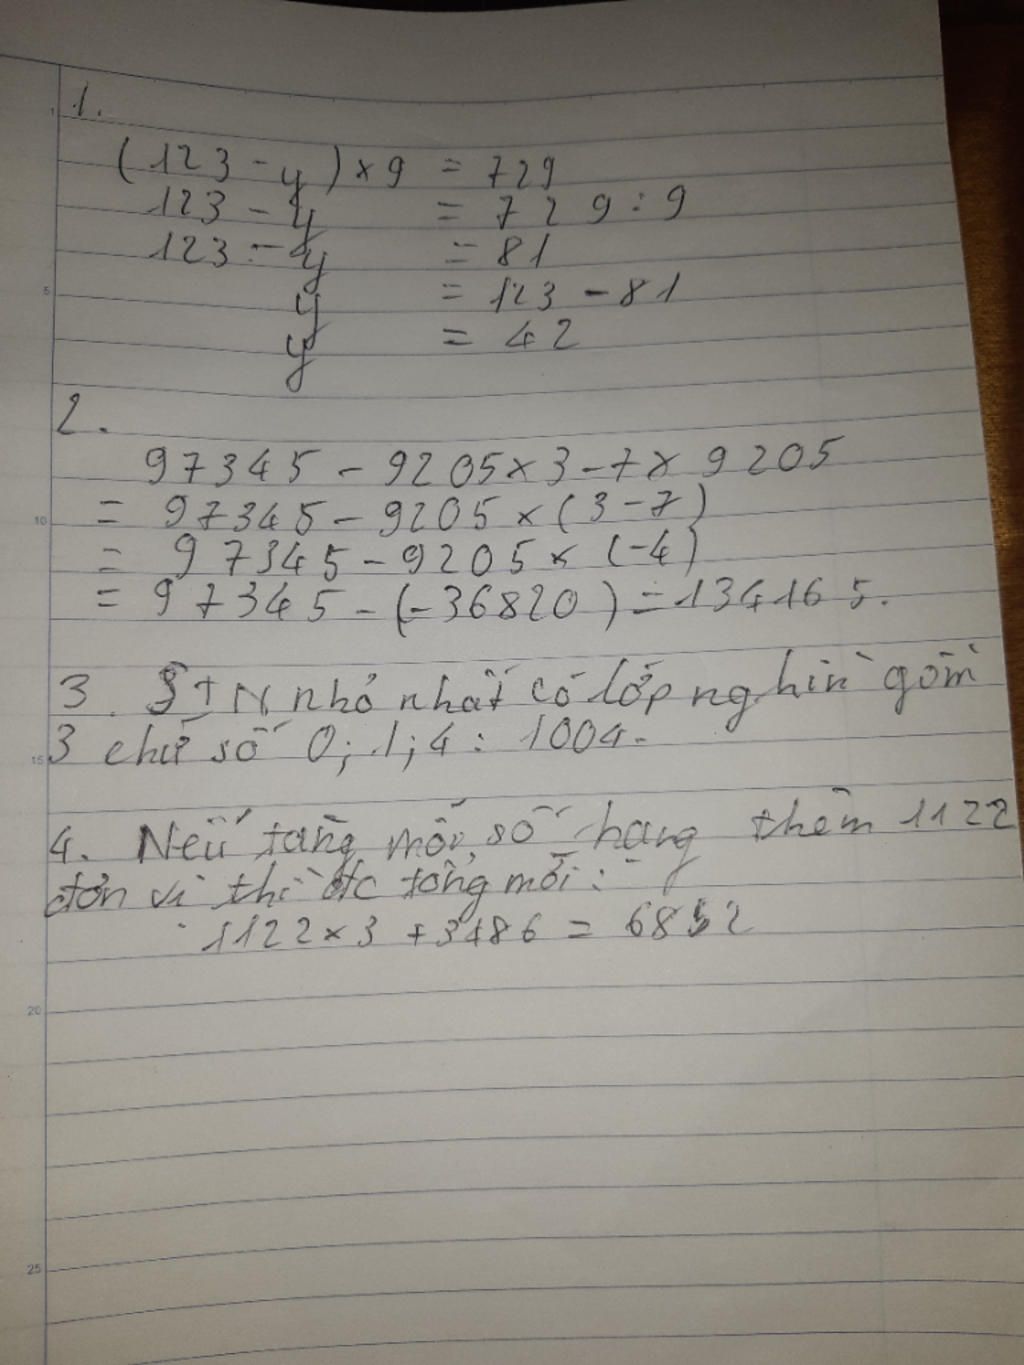 1.
(123 - y) × 9 = 729
123 - y = 729 : 9
123 - y = 81
y = 123 - 81
y = 42
2.
97345 - 9205 × 3 - 7 × 9205
= 97345 - 9205 × (3 - 7)
= 97345 - 9205 × (-4)
= 97345 - (-36820) = 134165.
3. STN nhỏ nhất có lớp nghìn gồm
3 chữ số 0; 1; 4 : 1004.
4. Nếu tăng mỗi số hạng thêm 1122
đơn vị thì đc tổng mới :
1122 × 3 + 3486 = 6852